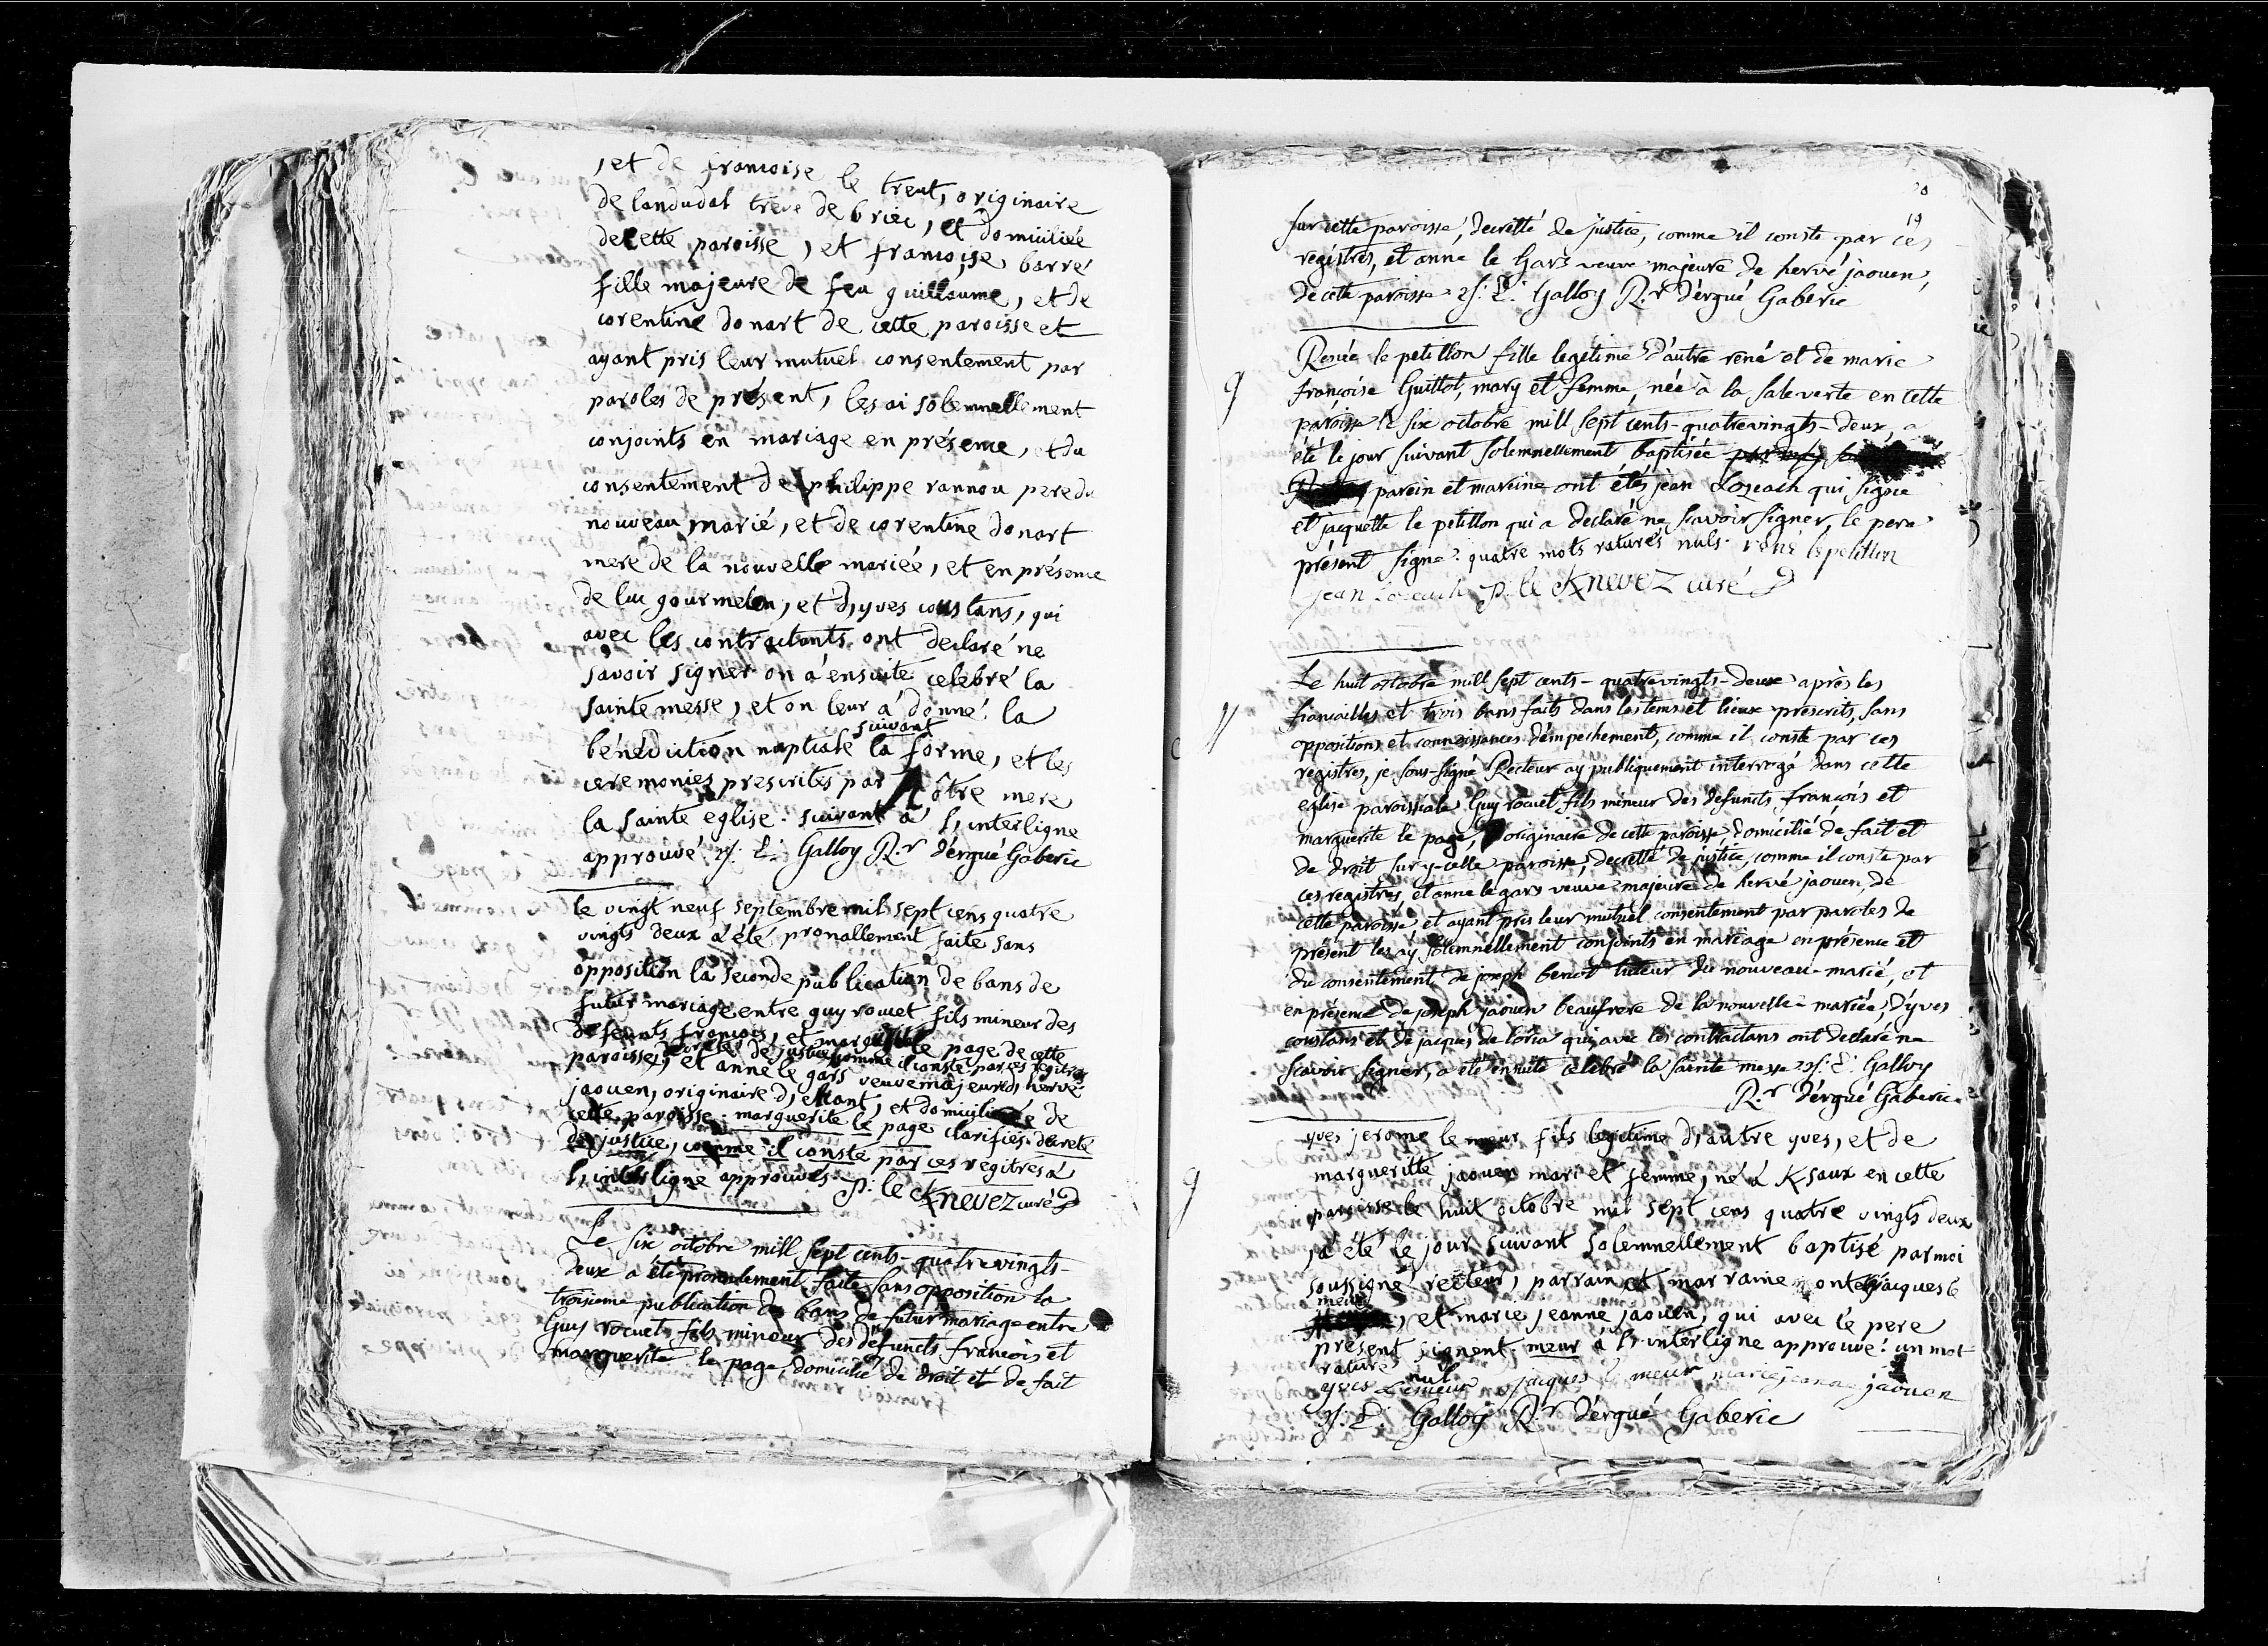 , et de francoise le treut, originaire
de landudal treve de briec, et domiciliée
de cette paroisse, et francoise barré
fille majeure de feu guillaume, et de
corentine donart de cette paroisse et
ayant pris leur mutuel consentement par
paroles de présent, les ai solemnellement
conjoints en mariage en présence, et du
consentement de philippe rannou pere du
nouveau marié, et de corentine donart
mere de la nouvelle mariéé, et en présence
de luc gourmelen, et d,yves coustans, qui
avec les contractants ont declaré ne
savoir signer on a ensuite celebré la
sainte messe, et on leur a donné la
suivant
bénédiction nuptiale la forme, et les
ceremonies prescrites par nôtre mere
la sainte eglise. suivant a l,interligne
approuvé. Galloy R.r d'ergué Gaberic
le vingt neuf septembre mil sept cens quatre
vingts deux a été pronallement faite sans
opposition la seconde publication de bans de
futur mariage entre guy rouet fils mineur des
defunts francois, et marguerite le page de cette
decreté de justice comme il conste par ces regitres
paroisse, et anne le gars veuve majeure d, hervé
jaouen, originaire d, elliant, et domiciliée de
cette paroisse. marguerite le page clarifiés. decreté
de justice, comme il conste par ces regitres a
l,interligne approuvés. p. le Knevez curé
Le six octobre mill sept cents-quatrevingts-
deux a été pronalement faite sans opposition la
troisieme publication de bans de futur mariage entre
Guy rocuet fils mineur des defuncts francois et
marguerite le page, domicilié de droit et de fait
19
sur cette paroisse, decretté de justice, comme il conste par ces
registres, et anne le Gars veuve majeure de hervé jaouen,
de cette paroisse. Galloy R.r d'ergué Gaberic
Renée le petillon fille legitime d'autre rené et de marie
françoise Guillot, mary et femme, née à la saleverte en cette
paroisse le six octobre mill sept cents-quatrevingts-deux, a
été le jour suivant solemnellement baptisée
parein et mareine ont étés jean Lozeach qui signe
et jacquette le petillon qui a declaré ne scavoir signer, le pere
présent signe. quatre mots raturés nuls. rené lepetillon
jean Lozeach p. le Knevez curé
Le huit octobre mill sept cents-quatrevingts-deux après les
fiancailles et trois bans faits dans les tems et lieux prescrits, sans
oppositions et connoissances d'empechement, comme il conste par ces
registres, je sous-signé Recteur ay publiquement interrogé dans cette
eglise paroissiale Guy rocuet fils mineur des defuncts françois et
marguerite le page, originaire de cette paroisse domicilié de fait et
de droit sur y-celle paroisse, decretté de justice, comme il conste par
ces registres, et anne le gars veuve majeure de hervé jaouen, de
cette paroisse, et ayant pris leur mutuel consentement par paroles de
présent les ay solemnellement conjoints en mariage en présence et
du consentement de joseph benoit tuteur du nouveau-marié, et
en présence de joseph jaouen beaufrere de la nouvelle-mariée, d'yves
coustans et de jacques de loria qui avec les contractans ont declaré ne
scavoir signer, a été ensuite célébré la sainte messe. Galloy
R.r d'ergué Gaberic
yves jerome le meur fils legitime d,autre yves, et de
margueritte jaouen mari et femme, né à Ksaux en cette
paroisse le huit octobre mil sept cens quatre vingts deux
, a été le jour suivant solemnellement baptisé par moi
soussigné recteur, parrain et marraine ont été jacques le
meur
, et marie jeanne jaouen, qui avec le pere
présent signent. meur à l,interligne approuvé. un mot
raturé nul
yves Lemeur jacques le meur marie jeanne jaouen
Galloy R.r d'ergué Gaberic